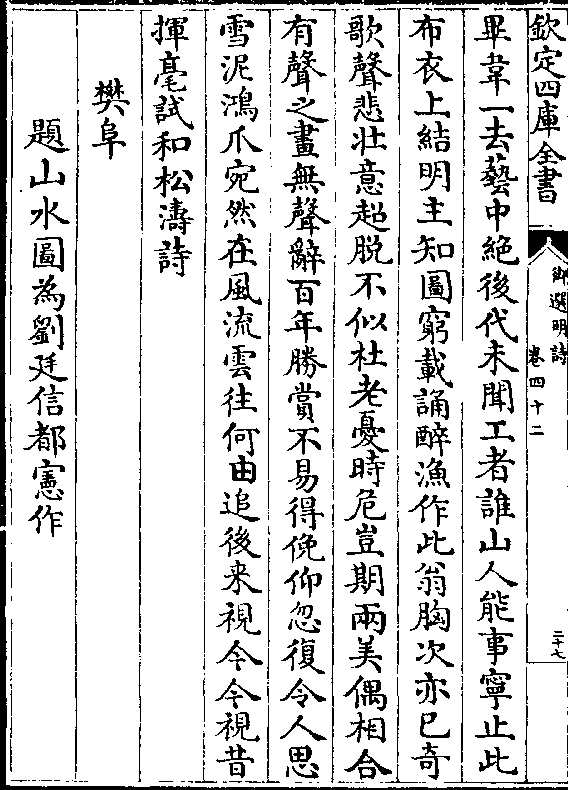 欽定四庫全書
御選明詩
卷四十二
二十七
畢韋一去藝中絕後代未聞工者誰山人能事寧止此
布衣上結明主知圖窮載誦醉漁作此翁胸次亦已奇
歌聲悲壯意超脱不似杜老憂時危豈期兩美偶相合
有聲之畫無聲辭百年勝賞不易得俛仰忽復令人思
雪泥鴻爪宛然在風流雲往何由追後来視今今視昔
揮毫試和松濤詩
樊阜
題山水圖為劉廷信都憲作